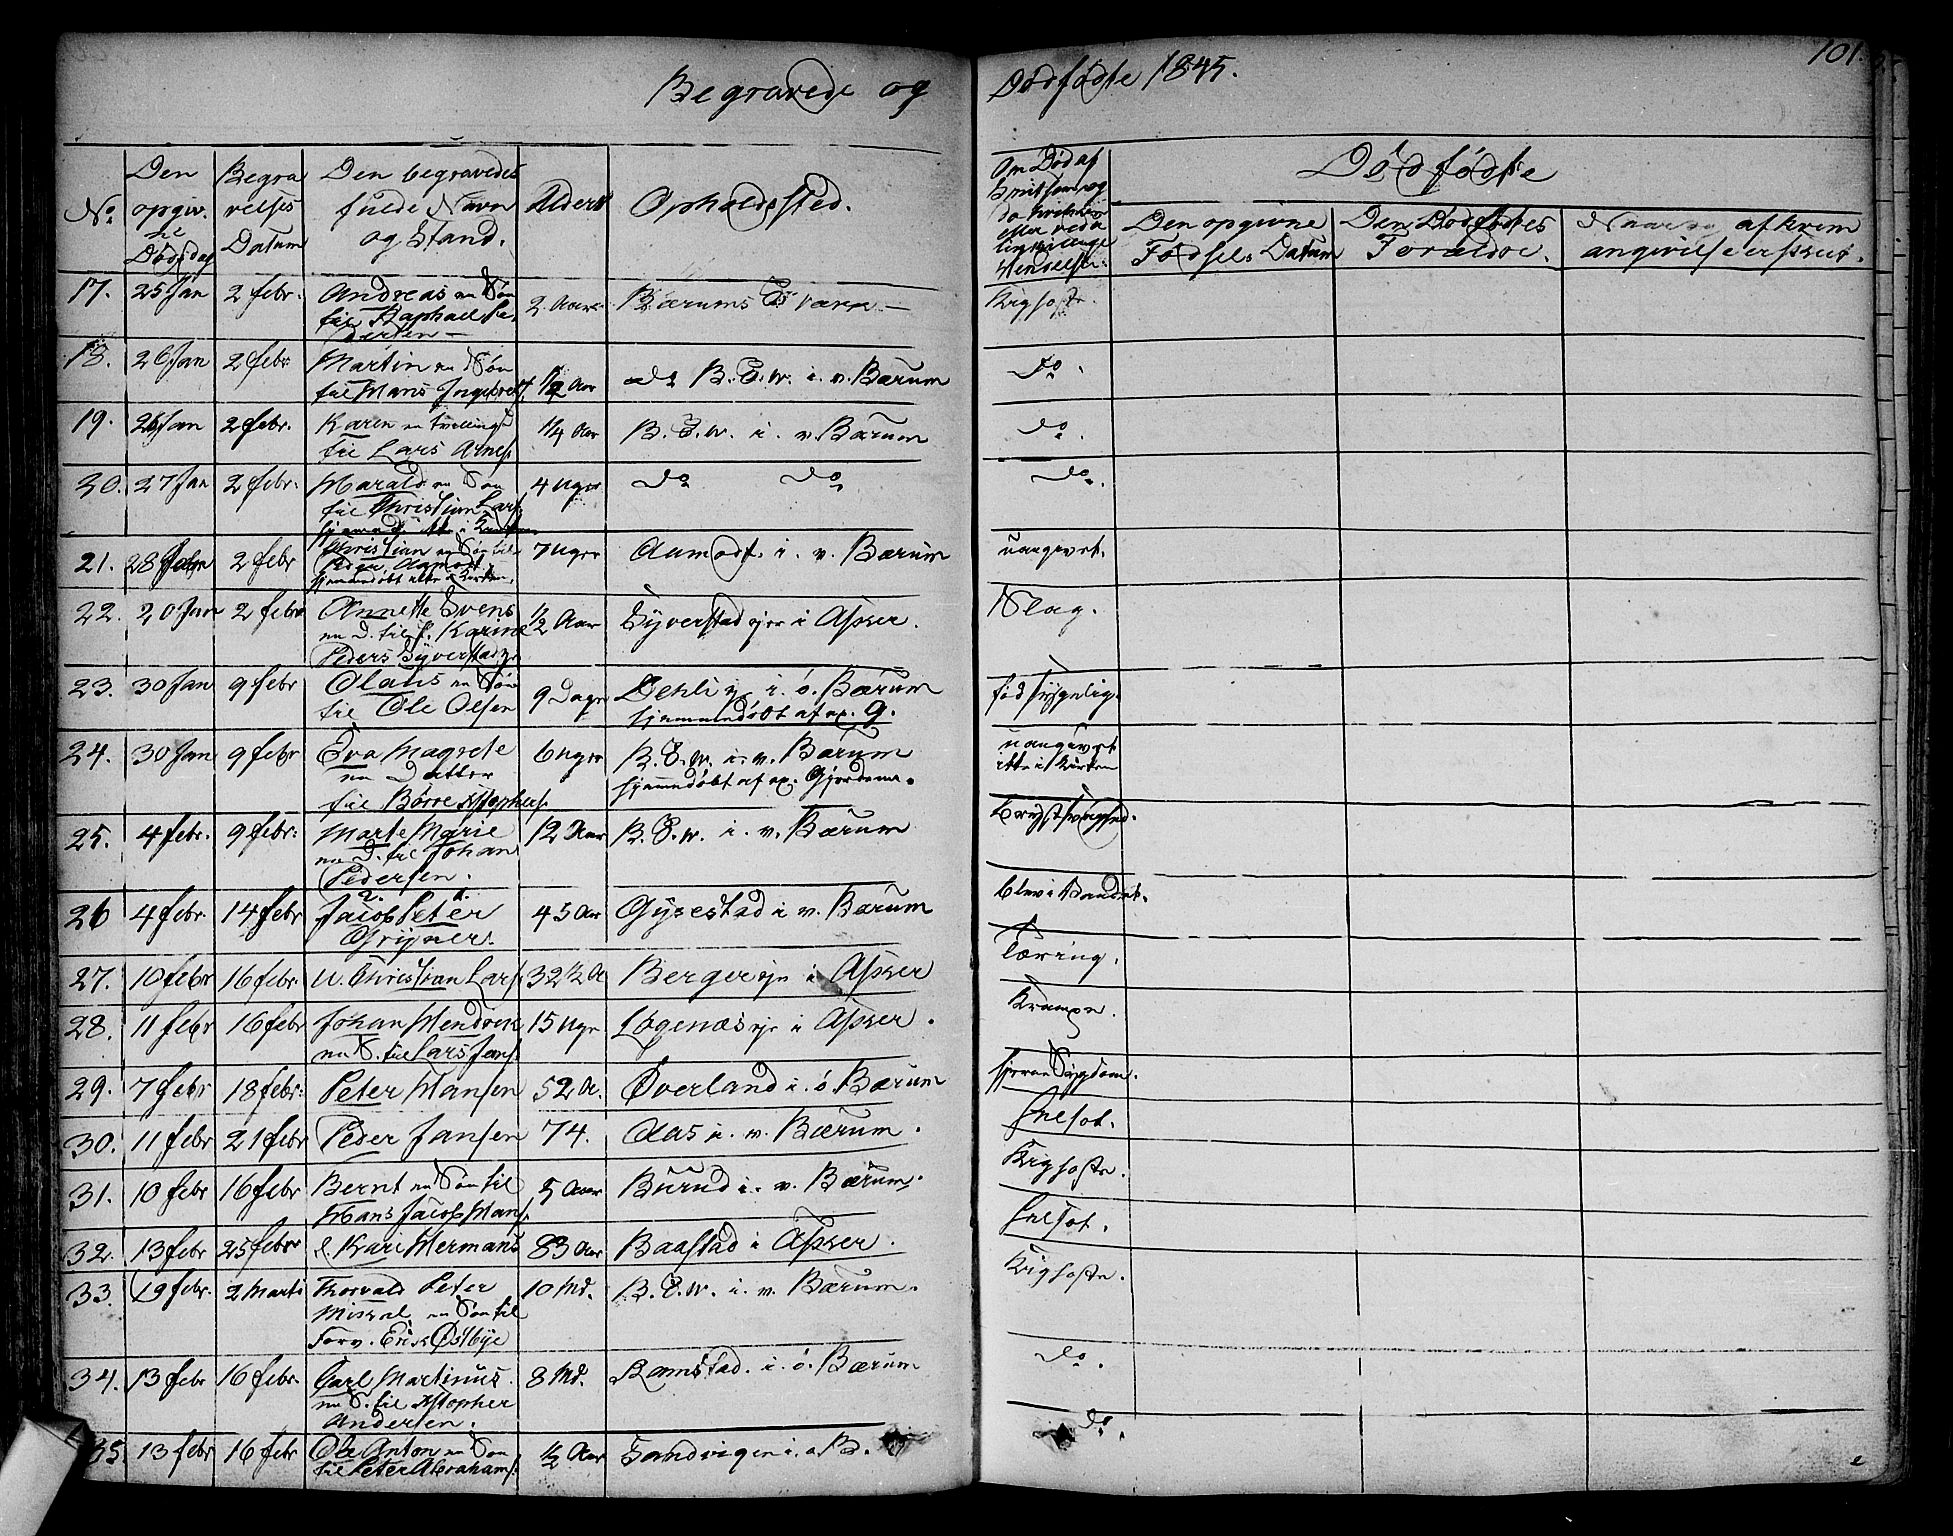 Begravede og
Dødfødte 1845.
101.
No
Den
opgiv.
ne
Dødsdag
Begra
velses
Datum
Den begravedes
fulde Navn
og Stand.
Alder
Opholdssted.
Om Død af
Dødfødte
Den opgivne
Fødsels Datum
Den Dødfødtes
Forældre.
af hvem
angivelse er skeet.
17. 25 Jan 2 febr. Andreas en Søn
til Raphael Pe-
dersen — 2 Aar Bærums Værk — Kighoste.
18. 26 Jan 2 febr Martin en Søn
til Hans Ingebrets. 1/2 Aar do B. V. i. v. Bærum do.
19. 26 Jan 2 febr. Karen en Tvilling
til Lars Arnes. 1/4 Aar B. V. i. v. Bærum do.
20. 27 Jan 2 febr. Harald en Søn
til Christian Lars. 4 Uger do do do.
21. 28 2 febr Christian en Søn til
Peder Aamodt
hjemmedøbt 7 Uger Aamodt. i. v. Bærum uangivet.
22. 20 Jan 2 febr Annette Svens
en D. til f. Karine
Peders Syverstadeje 1/2 Aar Syverstadejer i Asker. Slag.
23. 30 Jan 9 febr Olaus en Søn
til Ole Olsen 9 Dage Dehli i. ø. Bærum
hjemmedøbt af 9. fød sygelig.
24. 30 Jan 9 febr Eva Magrete
en Datter
til Børre Kstophers. 6 Uger B. V. i. v. Bærum
hjemmedøbt af Gjordem. uangivet
ikke i Kirken
25. 4 febr. 9 febr. Marte Marie
en D. til Johan
Pedersen. 12 Aar B. V. i. v. Bærum Brystsvaghed.
26 4 febr. 14 febr 2. 1.
Jacob Peter
Grijner. 45 Aar Gysestad i v. Bærum blev i Vandet.
27. 10 febr 16 febr. U. Christian Lars. 32 1/2 A Berger eje i Asker Tæring.
28. 11 febr 16 febr Johan Hendrik
en S. til Lars Jens. 15 Uger Løgenæs eje i Asker. Krampe.
29. 7 febr 18 febr. Peter Hansen 52 A. Øverland i. ø. Bærum
30. 11 febr 21 febr Peder Jansen 74. Aas i. v. Bærum.
31. 10 febr 16 febr Bernt en Søn til
Hans Jacob Hans. 5 Aar Burud i. v. Bærum. Kighoste.
32. 13 febr 25 febr e. Kari Hermans 83 Aar Baastad i Asker.
33. 19 febr. 2 Marts Thorvald Peter
en Søn til
Forv. Erik Østbye 10 Md. B. V. i. v. Bærum. Kighoste.
34. 13 febr 16 febr. Carl Martinus
en S. til Kstopher
Andersen. 8 Md. Ramstad. i. ø. Bærum do.
35. 13 febr 16 febr Ole Anton en Søn
til Peter Abrahams. 1/2 Aar Sandvigen i. ø B. do.